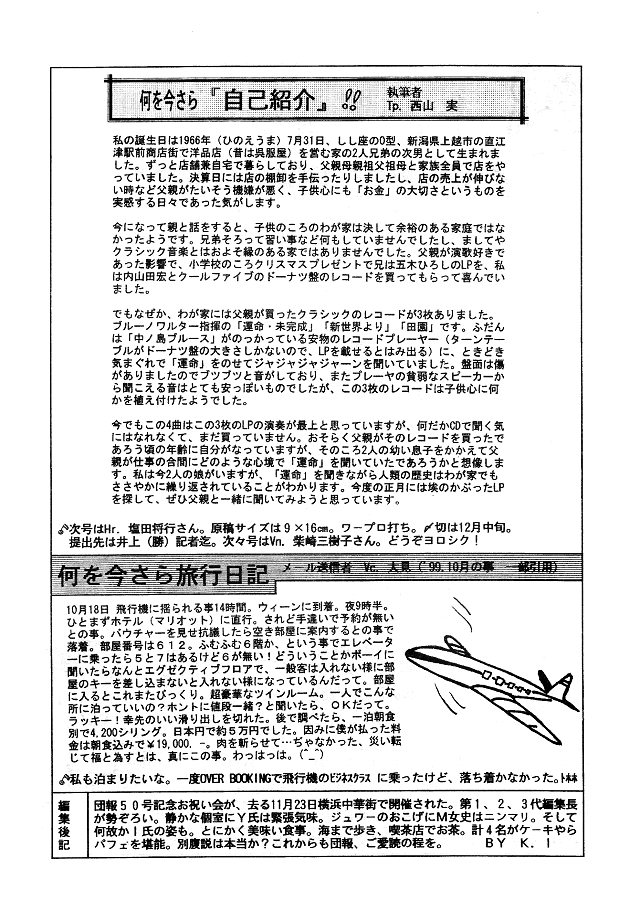 何を今さら『自己紹介』!!
執筆者
Tp. 西山 実
私の誕生日は1966年（ひのえうま）7月31日、しし座のO型、新潟県上越市の直江
津駅前商店街で洋品店（昔は呉服屋）を営む家の2人兄弟の次男として生まれま
した。ずっと店舗兼自宅で暮らしており、父親母親祖父祖母と家族全員で店をや
っていました。決算日には店の棚卸を手伝ったりしましたし、店の売上が伸びな
い時など父親がたいそう機嫌が悪く、子供心にも「お金」の大切さというものを
実感する日々であった気がします。
今になって親と話をすると、子供のころのわが家は決して余裕のある家庭ではな
かったようです。兄弟そろって習い事など何もしていませんでしたし、ましてや
クラシック音楽とはおよそ縁のある家ではありませんでした。父親が演歌好きで
あった影響で、小学校のころクリスマスプレゼントで兄は五木ひろしのLPを、私
は内山田宏とクールファイブのドーナツ盤のレコードを買ってもらって喜んでい
ました。
でもなぜか、わが家には父親が買ったクラシックのレコードが3枚ありました。
ブルーノワルター指揮の「運命・未完成」「新世界より」「田園」です。ふだん
は「中ノ島ブルース」がのっかっている安物のレコードプレーヤー（ターンテー
ブルがドーナツ盤の大きさしかないので、LPを載せるとはみ出る）に、ときどき
気まぐれで「運命」をのせてジャジャジャジャーンを聞いていました。盤面は傷
がありましたのでブツブツと音がしており、またプレーヤの貧弱なスピーカーか
ら聞こえる音はとても安っぽいものでしたが、この3枚のレコードは子供心に何
かを植え付けたようでした。
今でもこの4曲はこの3枚のLPの演奏が最上と思っていますが、何だかCDで聞く気
にはなれなくて、まだ買っていません。おそらく父親がそのレコードを買ったで
あろう頃の年齢に自分がなっていますが、そのころ2人の幼い息子をかかえて父
親が仕事の合間にどのような心境で「運命」を聞いていたであろうかと想像しま
す。私は今2人の娘がいますが、「運命」を聞きながら人類の歴史はわが家でも
ささやかに繰り返されていることがわかります。今度の正月には埃のかぶったLP
を探して、ぜひ父親と一緒に聞いてみようと思っています。
次号はHr. 塩田将行さん。原稿サイズは９×16㎝。ワープロ打ち。〆切は12月中旬。
提出先は井上（勝）記者迄。次々号はVn. 柴崎三樹子さん。どうぞヨロシク！
何を今さら旅行日記
メール送信者 Vc. 大見（'99.10月の事 一部引用）
10月18日 飛行機に揺られる事14時間。ウィーンに到着。夜9時半。
ひとまずホテル（マリオット）に直行。されど手違いで予約が無い
との事。バウチャーを見せ抗議したら空き部屋に案内するとの事で
落着。部屋番号は６１２。ふむふむ６階か、という事でエレベータ
ーに乗ったら５と７はあるけど６が無い！どういうことかボーイに
聞いたらなんとエグゼクティブフロアで、一般客は入れない様に部
屋のキーを差し込まないと入れない様になっているんだって。部屋
に入るとこれまたびっくり。超豪華なツインルーム。一人でこんな
所に泊っていいの？ホントに値段一緒？と聞いたら、OKだって。
ラッキー！幸先のいい滑り出しを切れた。後で調べたら、一泊朝食
別で4,200シリング。日本円で約５万円でした。因みに僕が払った料
金は朝食込みで￥19,000．-。肉を斬らせて…ぢゃなかった、災い転
じて福と為すとは、真にこの事。わっはっは。(^_^)
私も泊まりたいな。一度OVER BOOKINGで飛行機のﾋﾞｼﾞﾈｽｸﾗｽ に乗ったけど、落ち着かなかった。
編集後記
団報５０号記念お祝い会が、去る11月23日横浜中華街で開催された。第１、２、３代編集長
が勢ぞろい。静かな個室にY氏は緊張気味。ジュワーのおこげにM女史はニンマリ。そして
何故かI氏の姿も。とにかく美味い食事。海まで歩き、喫茶店でお茶。計４名がケーキやら
パフェを堪能。別腹説は本当か？これからも団報、ご愛読の程を。 BY K．I